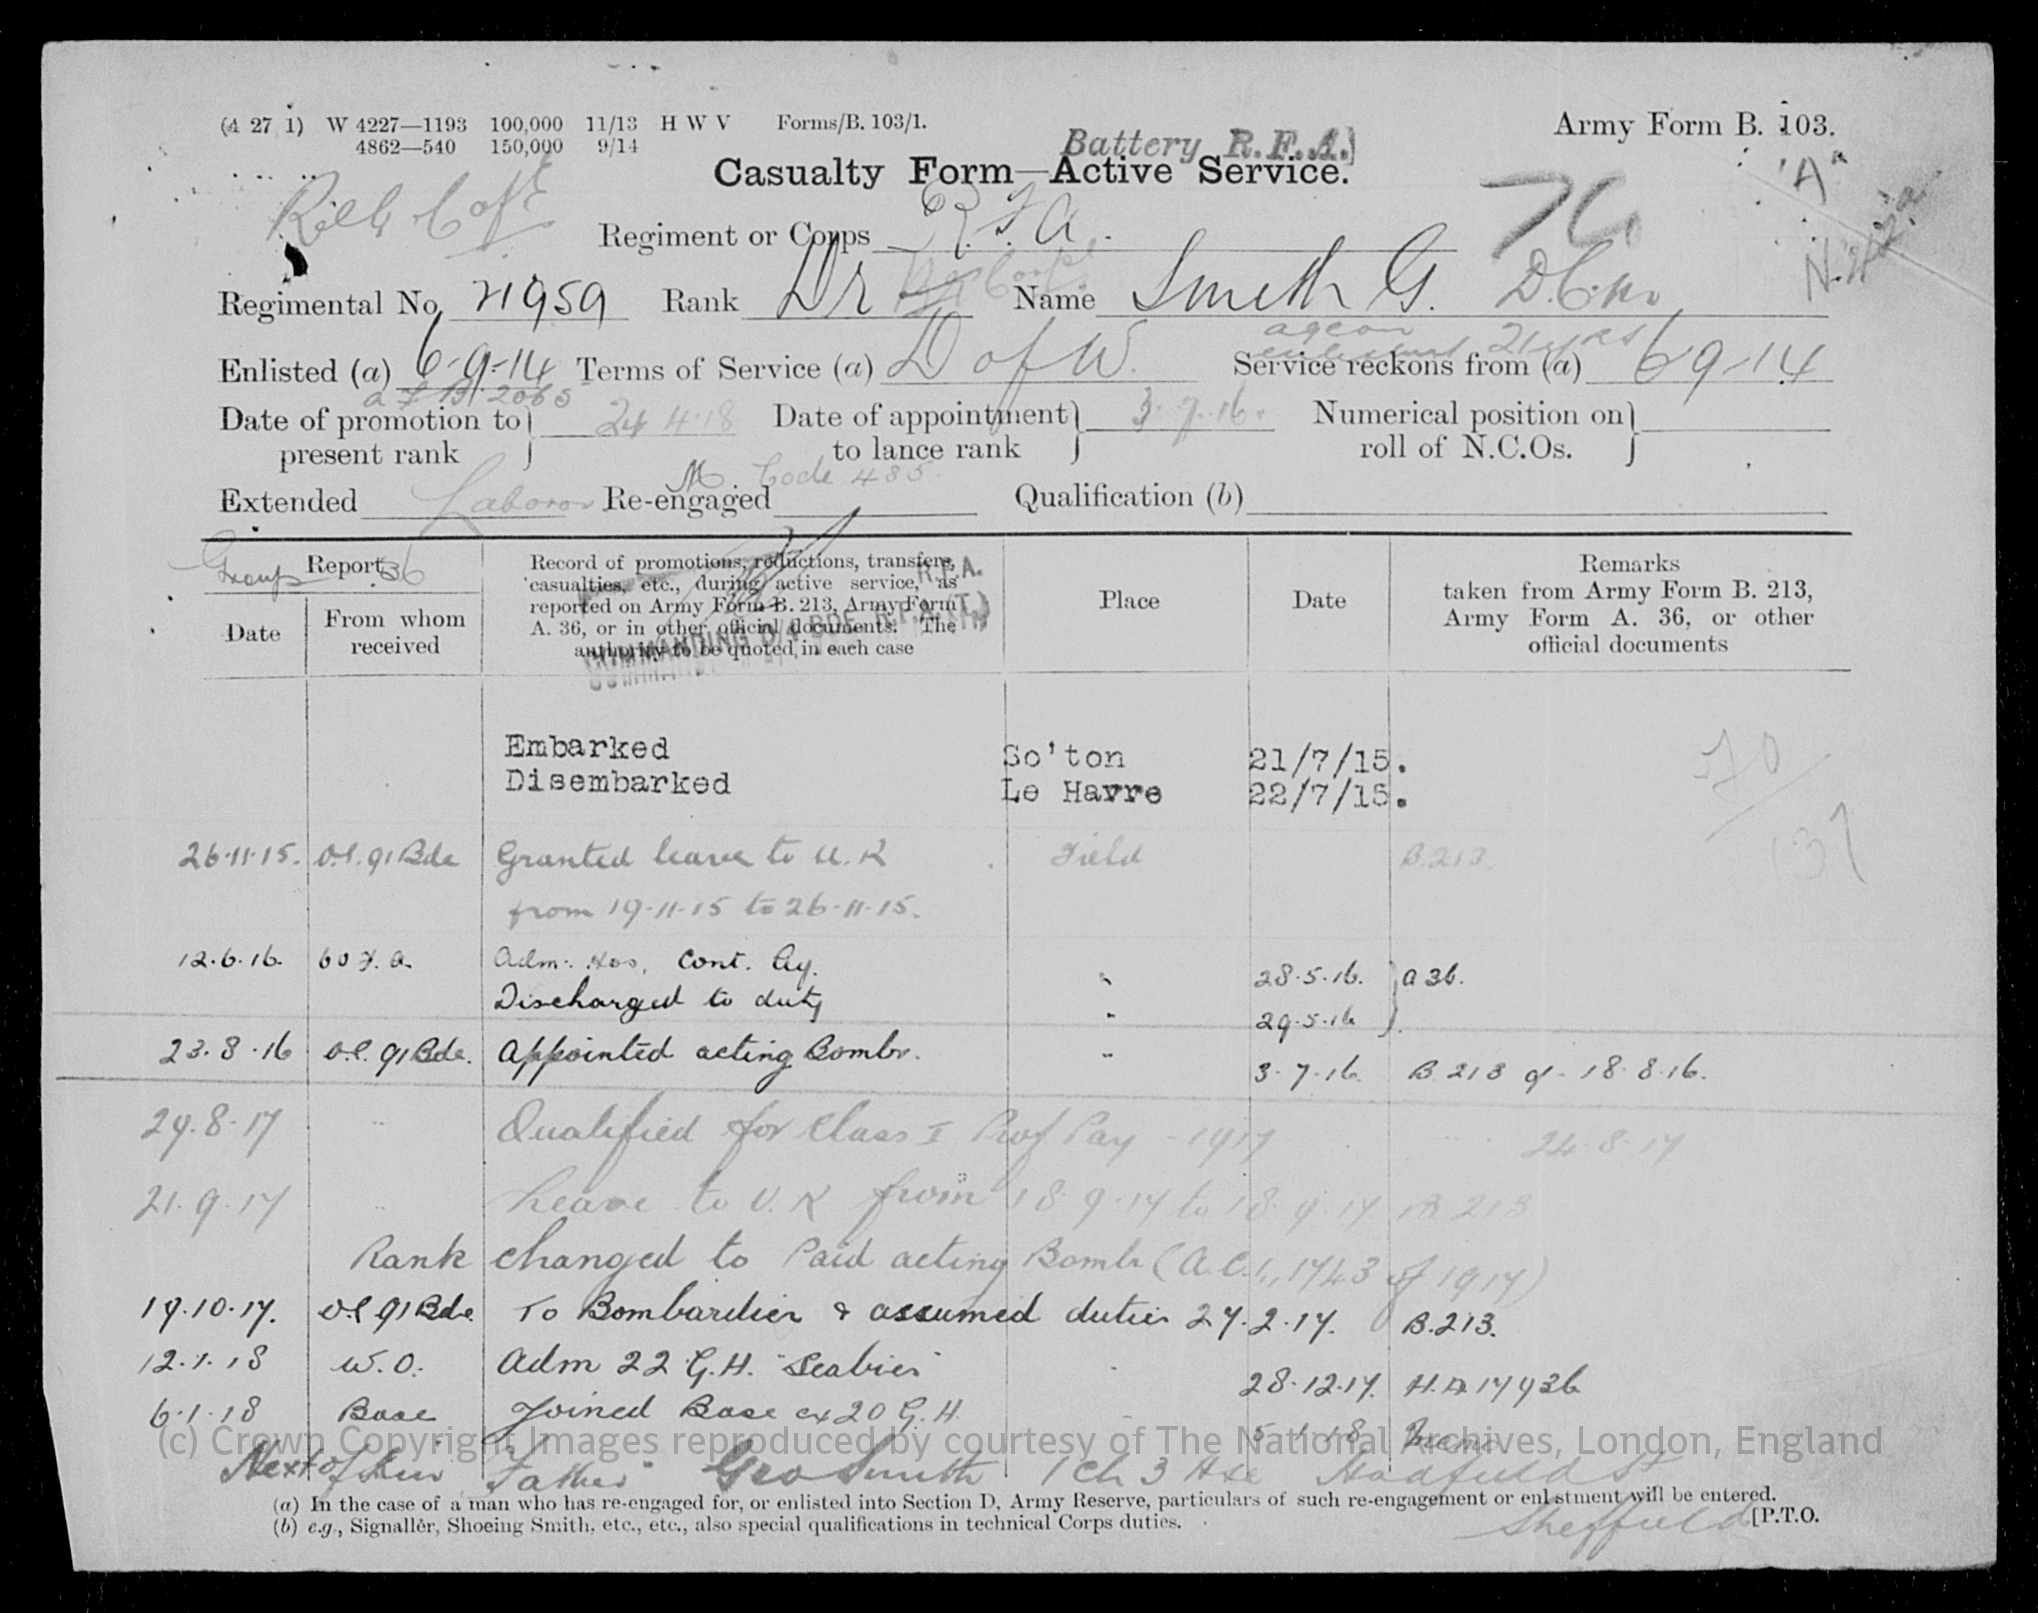 (A 27 1) W 4227—1193 100,000 11/13 H W V Forms/B. 103/1.
4862—540 150,000 9/14
Army Form B. 103.
"A"
Battery R.F.A.]
Casualty Form—Active Service.
Regiment or Corps R.F.A.
Regimental No. 71959 Rank Dr Name Smith G. D.C.M.
Enlisted (a) 6-9-14 Terms of Service (a) D of W. Service reckons from (a) 6-9-14
Date of promotion to present rank 24 4.18 Date of appointment to lance rank 3.7.16. Numerical position on roll of N.C.Os.
M Code 485.
Extended Laborer Re-engaged Qualification (b)
Group 36
Report
Date
From whom received
Record of promotions, reductions, transfers, casualties, etc., during active service, as reported on Army Form B. 213, Army Form A. 36, or in other official documents. The authority to be quoted in each case
Place
Date
Remarks taken from Army Form B. 213, Army Form A. 36, or other official documents
Embarked So'ton 21/7/15.
Disembarked Le Havre 22/7/15.
26.11.15. O.C. 91 Bde Granted leave to U.K Field B.213.
from 19.11.15 to 26.11.15.
12.6.16. 60 F.A. Adm: Hos, Cont. 28.5.16. A 36.
Discharged to duty " 29.5.16
23.8.16 O.C. 91 Bde. Appointed acting Bombr. " 3.7.16. B 213 of 18.8.16.
29.8.17 " Qualified for Class I Prof Pay 1917 24.8.17
21.9.17 " Leave to U.K from 18.9.17 to B 213
Rank changed to Paid acting Bombr (A.C.I., 1743 of 1917)
19.10.17. O.C 91 Bde. To Bombardier & assumed duties 27.2.17. B.213.
12.1.18 W.O. Adm 22 G.H. "Scabies" 28.12.17. H.A 17936
6.1.18 Base Joined Base ex 20 G.H. 5.1.18
(c) Crown Copyright Images reproduced by courtesy of The National Archives, London, England
Next of Kin Father Geo Smith 1 Ch 3 Hse Hadfield St
Sheffield
(a) In the case of a man who has re-engaged for, or enlisted into Section D, Army Reserve, particulars of such re-engagement or enlistment will be entered.
(b) e.g., Signaller, Shoeing Smith, etc., etc., also special qualifications in technical Corps duties.
[P.T.O.